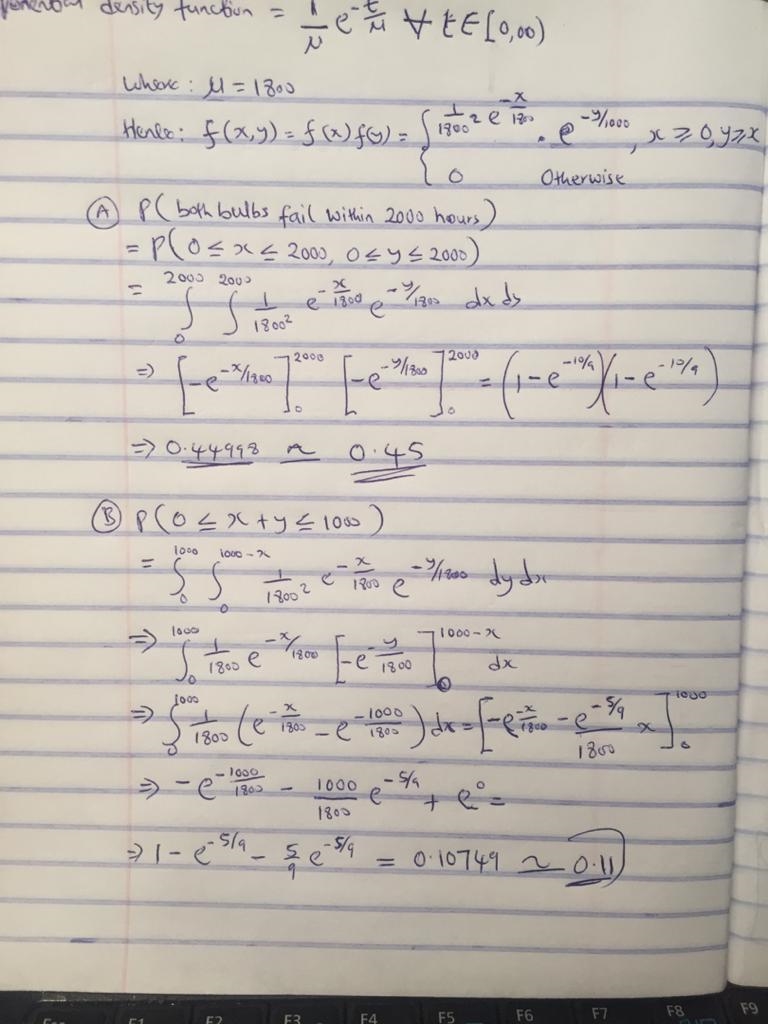 density function = 1/μ e^(-t/μ) ∀ t ∈ [0,∞)
Where : μ = 1800
Hence : f(x,y) = f(x) f(y) = { 1/1800² e^(-x/180) . e^(-y/1000) , x ⩾ 0, y ⩾ x
0 Otherwise
Ⓐ P( both bulbs fail within 2000 hours)
= P( 0 ≤ x ≤ 2000, 0 ≤ y ≤ 2000)
= ∫_0^2000 ∫^2000 1/1800² e^(-x/1800) e^(-y/1800) dx dy
⇒ [-e^(-x/1800)]_0^2000 [-e^(-y/1800)]_0^2000 = (1-e^(-10/9))(1-e^(-10/9))
⇒ 0.44998 ~ 0.45
Ⓑ P( 0 ≤ x + y ≤ 1000 )
= ∫_0^1000 ∫_0^(1000-x) 1/1800² e^(-x/1800) e^(-y/1800) dy dx
⇒ ∫_0^1000 1/1800 e^(-x/1800) [-e^(-y/1800)]_0^(1000-x) dx
⇒ ∫_0^1000 1/1800 (e^(-x/1800) - e^(-1000/1800)) dx = [-e^(-x/1800) - e^(-5/9)/1800 x]_0^1000
⇒ -e^(-1000/1800) - 1000/1800 e^(-5/9) + e^0 =
⇒ 1 - e^(-5/9) - 5/9 e^(-5/9) = 0.10749 ~ 0.11
F1 F2 F3 F4 F5 F6 F7 F8 F9